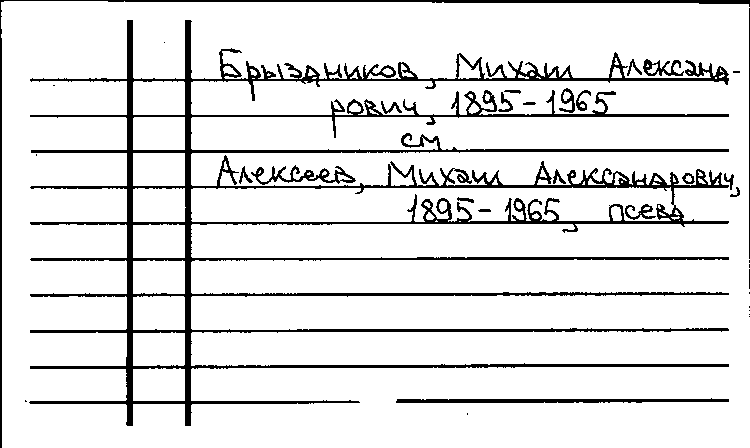 Брыздников, Михаил Александ-
рович, 1895-1965
см.
Алексеев, Михаил Александрович,
1895-1965, псевд.